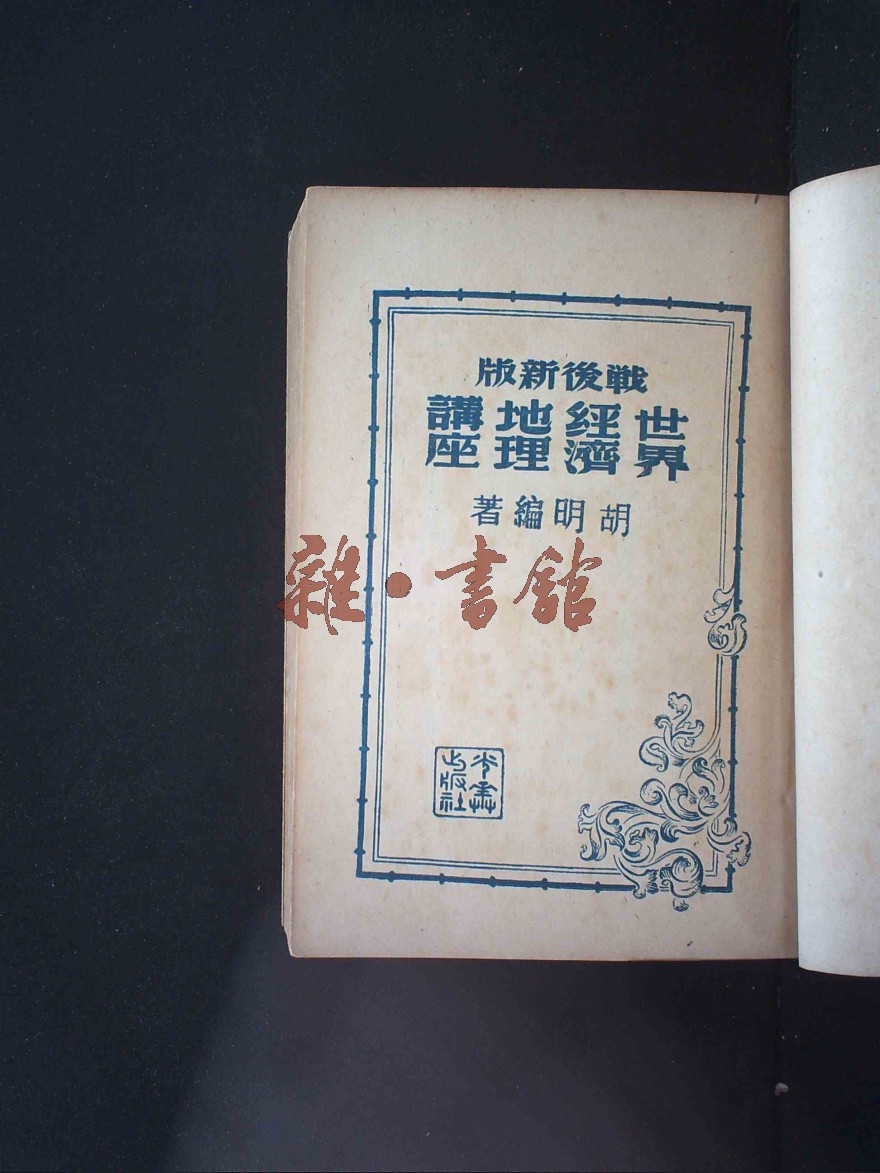 戰後新版
世界經濟地理講座
胡明編著
雜·書館
光華出版社